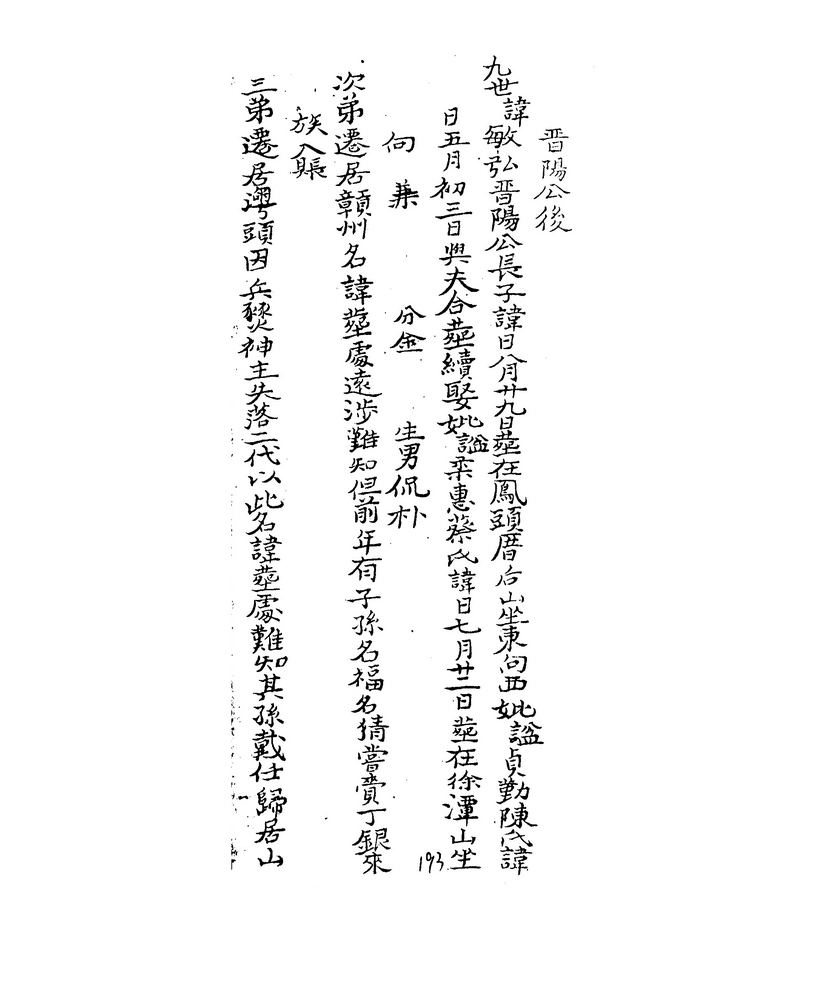 晋陽公後
九世諱敏弘晋陽公長子諱日八月廿九日塟在鳳頭厝后山坐東向西妣謚貞勤陳氏諱
日五月初三日與夫合塟續娶妣謚柔惠蔡氏諱日七月廿二日塟在徐潭山坐
向 兼 分金 生男侃朴
次弟遷居贛州名諱塟處遠涉難知但前年有子孫名福名猜嘗賫丁銀來
族入賬
三弟遷居澚頭因兵燹神主失落二代以此名諱塟處難知其孫戴仕歸居山
193